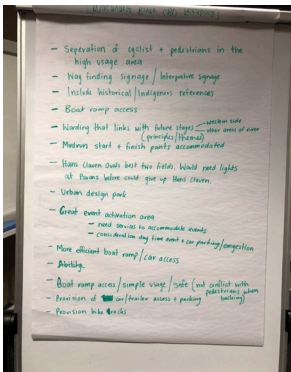 - Seperation of cyclist + pedestrians in the
high usage area
- Way finding signage / Interpretive signage
- Include historical / Indigenous references
- Boat ramp access
- Wording that links with future stages - western side
(principles/themes) - other areas of river
- Modness start + finish points accommodated
- Hans Claven Ovals best two fields. Would need lights
at before could give up Hans Claven.
- Urban design park
- Great event activation area
- need services to accommodate events
- consideration day time event + car parking/congestion
- More efficient boat ramp / car access
-
- Boat ramp access / simple usage / safe (not conflict with
pedestrians when
backing)
- Provision of car/trailer access + parking
- Provision bike racks